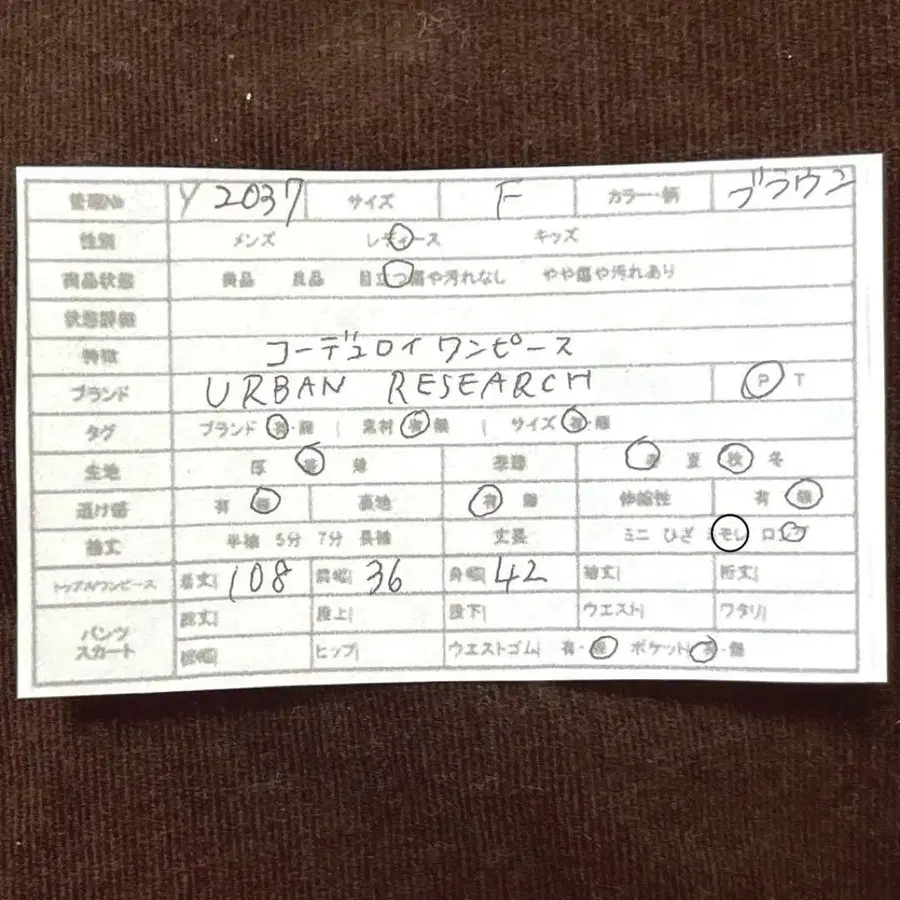 管理No Y 2037 サイズ F カラー・柄 ブラウン
性別 メンズ レディース キッズ
商品状態 美品 良品 目立つ傷や汚れなし やや傷や汚れあり
状態詳細
特徴 コーデュロイワンピース
ブランド URBAN RESEARCH P T
タグ ブランド 有・無 | 素材 有・無 | サイズ 有・無
生地 厚 普 薄 季節 春 夏 秋 冬
透け感 有 無 裏地 有 無 伸縮性 有 無
袖丈 半袖 5分 7分 長袖 丈長 ミニ ひざ ミモレ ロング
トップス/ワンピース 着丈| 108 肩幅| 36 身幅| 42 袖丈| 裄丈|
パンツ スカート 総丈| 股上| 股下| ウエスト| ワタリ|
裾幅| ヒップ| ウエストゴム| 有・無 ポケット| 有・無